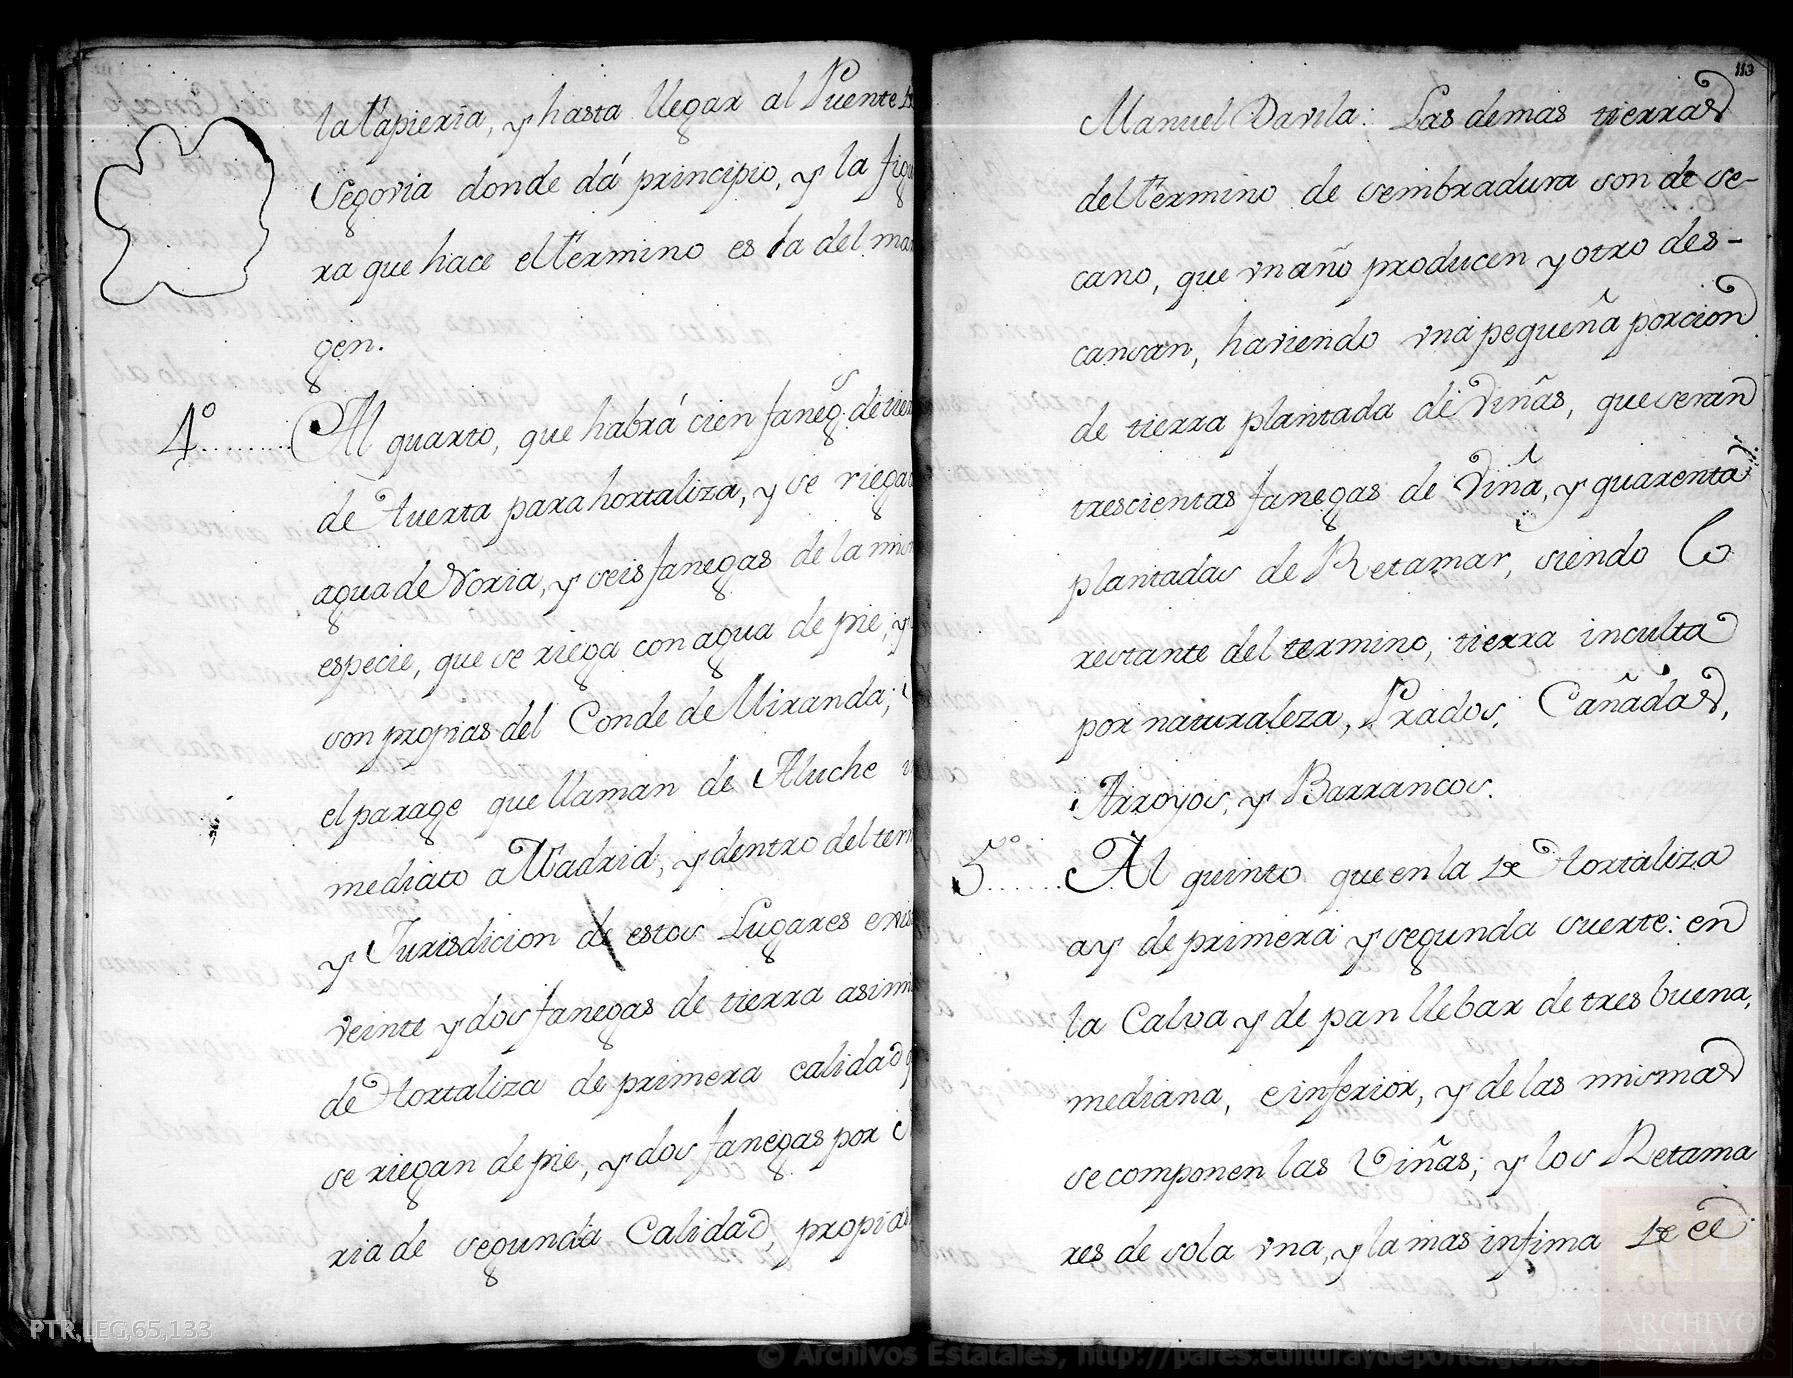 la Tapieria, y hasta llegar al Puente
Segovia donde dá principio, y la figu
ra que hace el Termino es la del mar
gen.
4º ........ Al quarto, que habrá cien faneg.s de tierr
de Huerta para hortaliza, y se riegan
agua de Noria, y seis fanegas de la mis
especie, que se riega con agua de pie, y
son propias del Conde de Miranda;
el parage que llaman de Aluche
mediato a Madrid, y dentro del term
y Jurisdicion de estos Lugares exis
veinte y dos fanegas de tierra asimi
de Hortaliza de primera calidad q
se riegan de pie, y dos fanegas por
ria de segunda Calidad, propias
113
Manuel Davila: Las demas tierras
del Termino de sembradura son de se-
cano, que vn año producen y otro des-
cansan, haviendo vna pequeña porcion
de tierra plantada de Viñas, que seran
trescientas fanegas de Viña, y quarenta
plantadas de Retamar, siendo lo
restante del termino, tierra inculta
por naturaleza, Prados, Cañadas,
Arroyos, y Barrancos.
5º ...... Al quinto que en la de Hortaliza
ay de primera y segunda suerte: en
la Calva y de pan llebar de tres buena,
mediana, e inferior, y de las mismas
se componen las Viñas; y los Retama
res de sola vna, y la mas infima de el
PTR,LEG,65,133
© Archivos Estatales, http://pares.culturaydeporte.gob.es
ARCHIVOS
ESTATALES